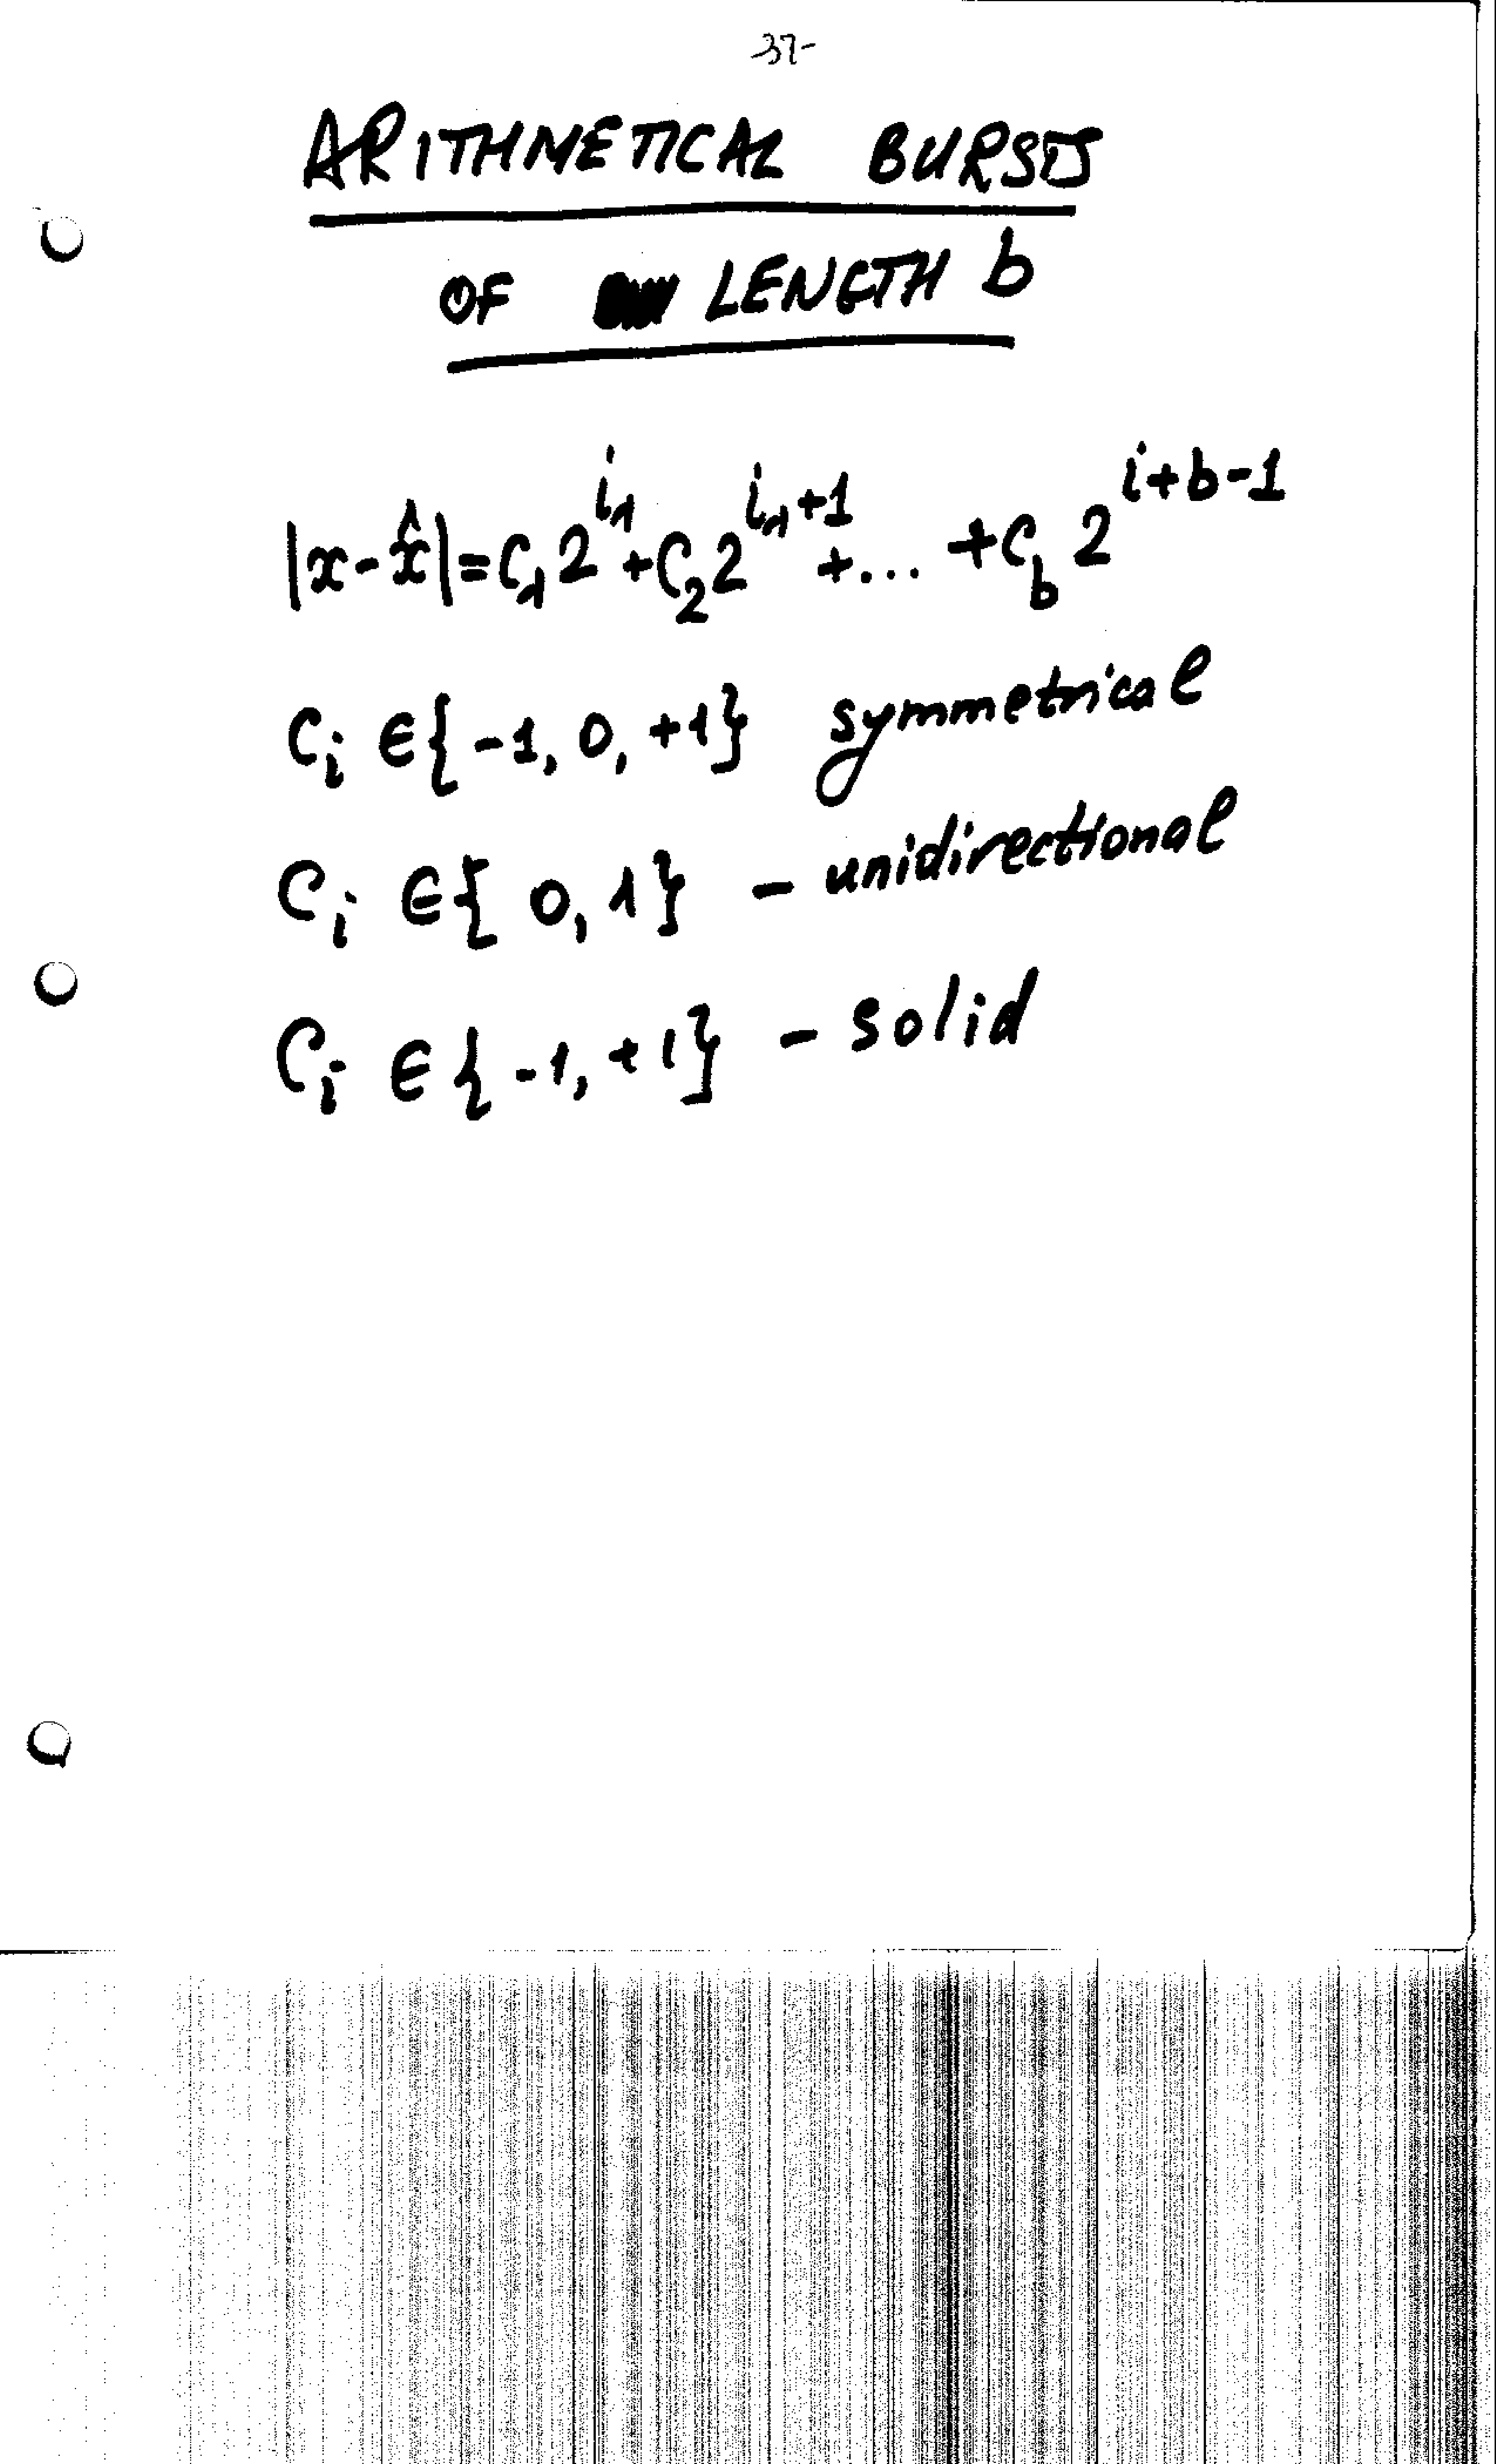 -37-
ARITHMETICAL BURSTS
OF LENGTH b
|x-x̂|=C₁2^{i₁}+C₂2^{i₁+1}+...+C_b 2^{i+b-1}
C_i ∈{-1, 0, +1} symmetrical
C_i ∈{ 0, 1} - unidirectional
C_i ∈{-1, +1} - solid